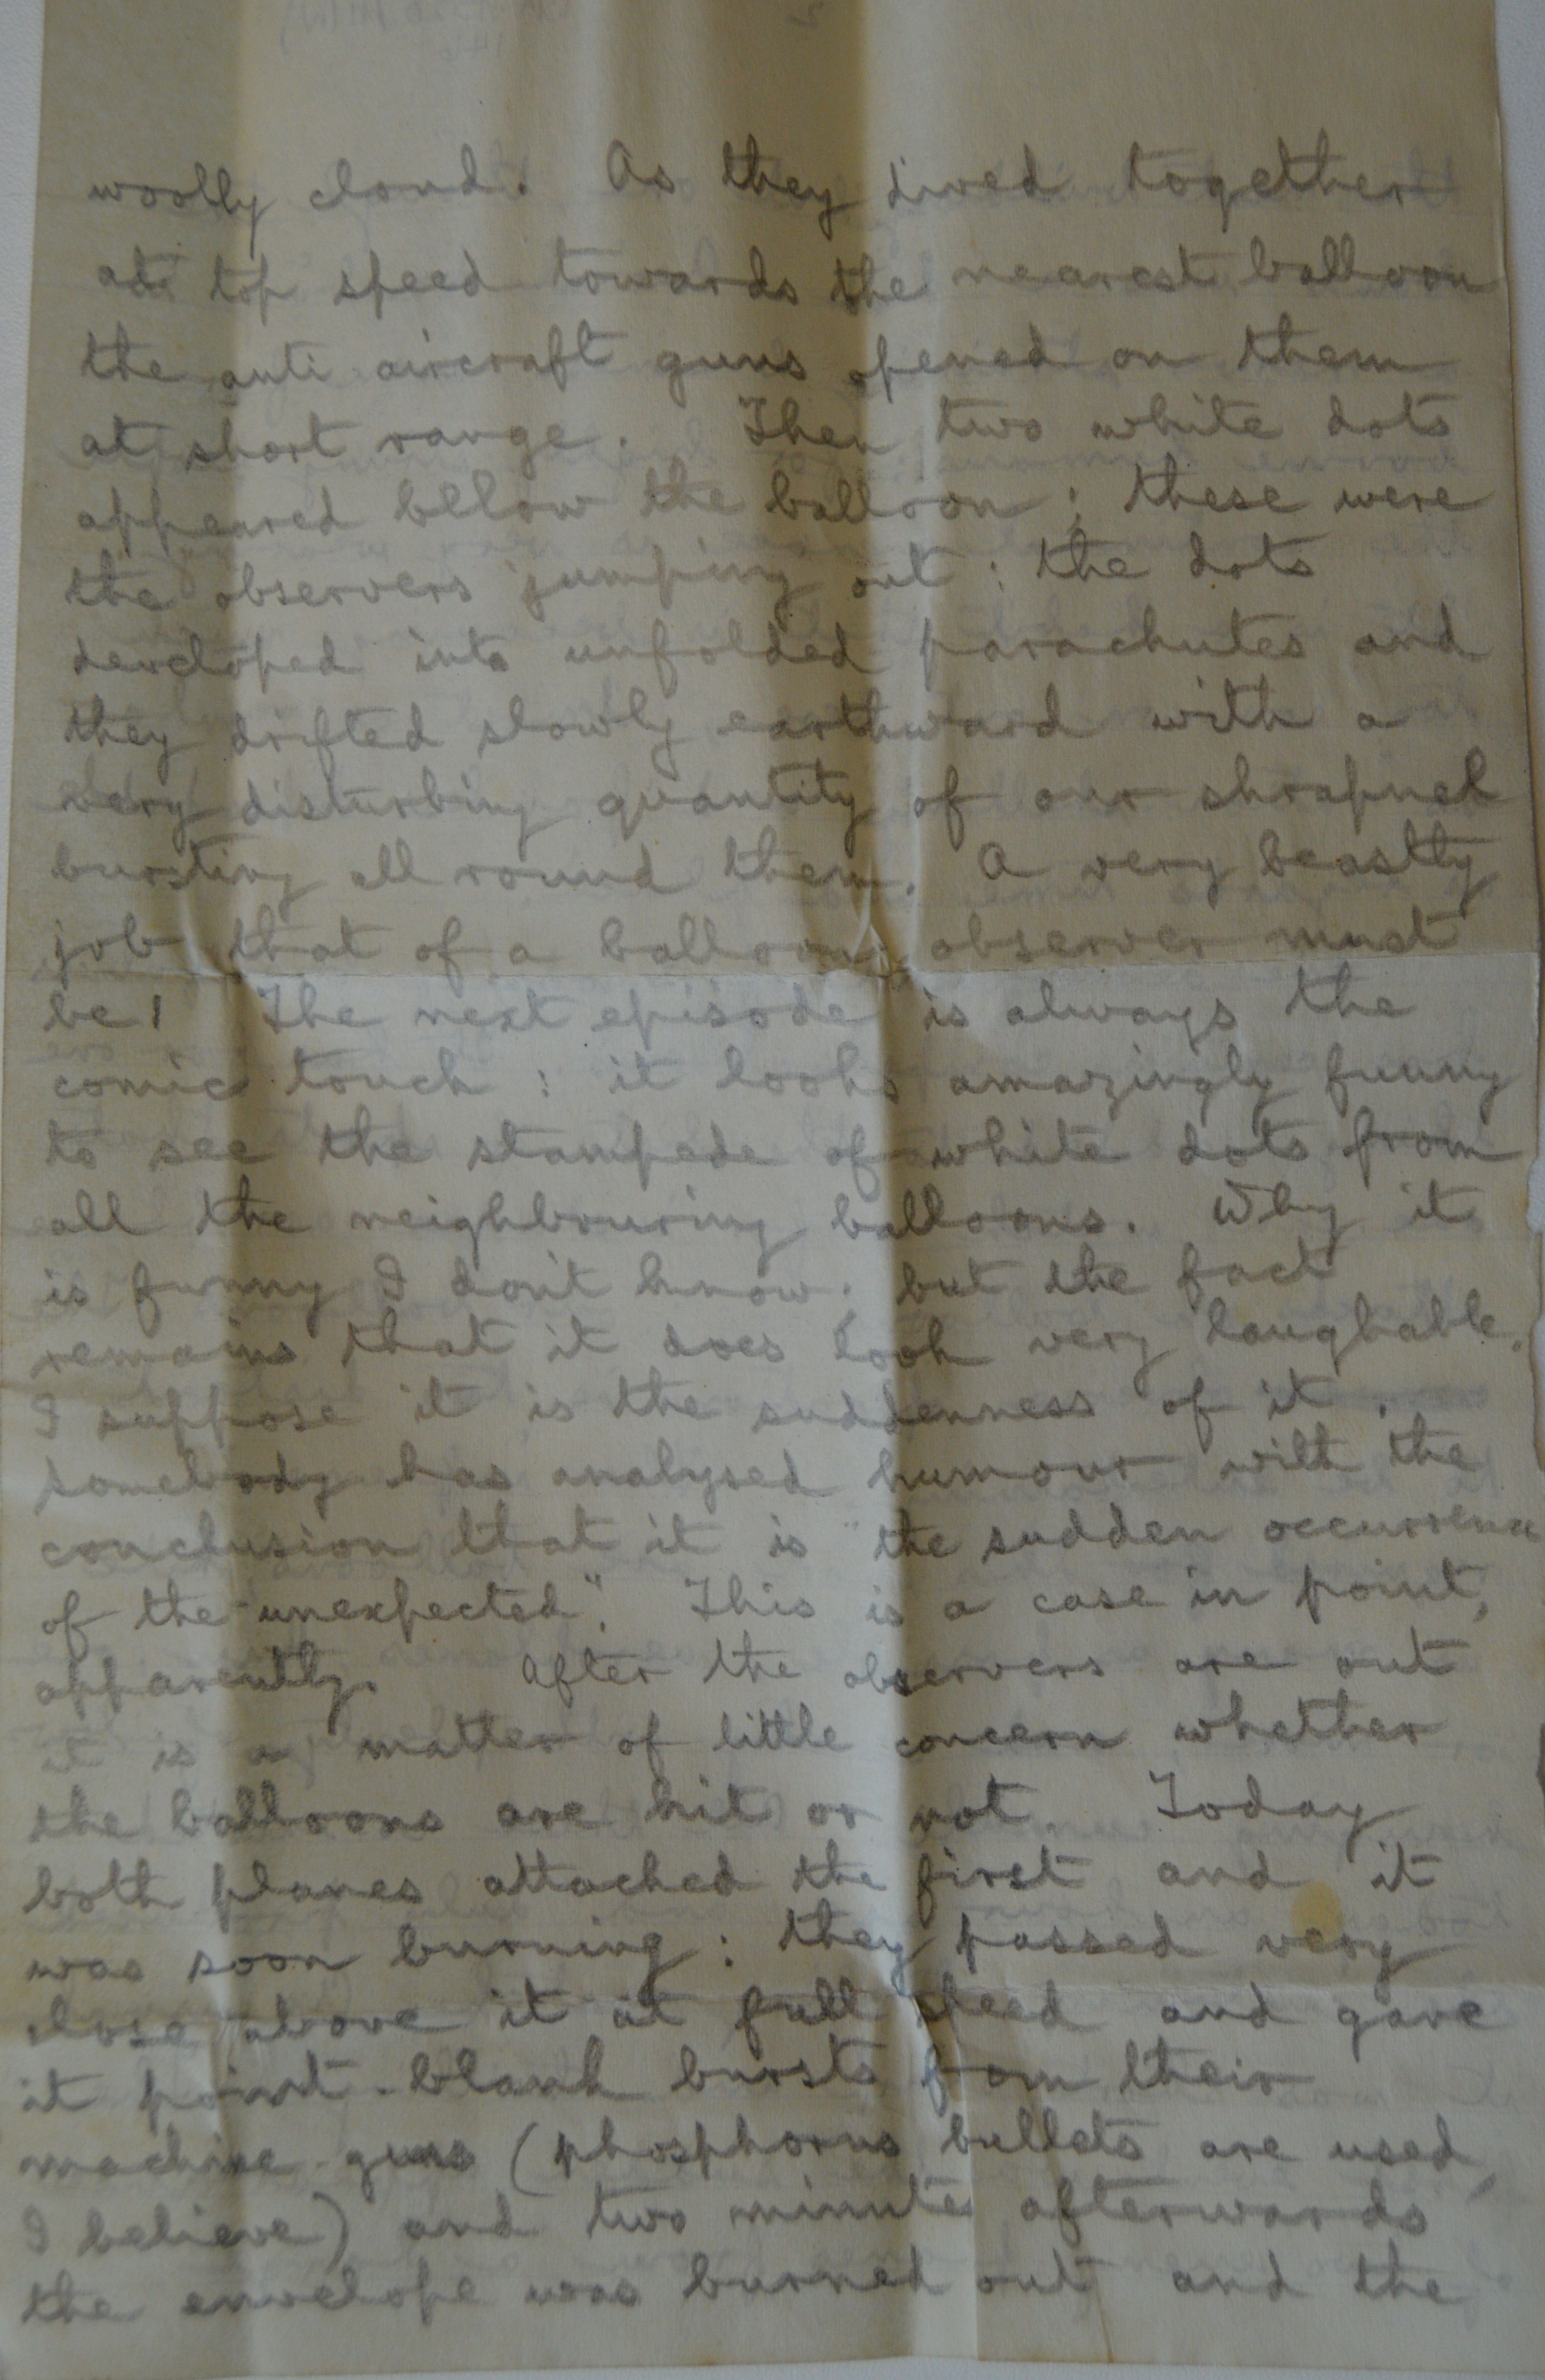 woolly cloud. As they dived together
at top speed towards the nearest balloon
the anti aircraft guns opened on them
at short range. Then two white dots
appeared below the balloon ; these were
the observers jumping out : the dots
developed into unfolded parachutes and
they drifted slowly earthward with a
very disturbing quantity of our shrapnel
bursting all round them. A very beastly
job that of a balloon observer must
be! The next episode is always the
comic touch : it looks amazingly funny
to see the stampede of white dots from
all the neighbouring balloons. Why it
is funny I don't know ; but the fact
remains that it does look very laughable.
I suppose it is the suddenness of it.
Somebody has analysed humour with the
conclusion that it is "the sudden occurrence
of the unexpected". This is a case in point,
apparently. After the observers are out
it is a matter of little concern whether
the balloons are hit or not. Today
both planes attacked the first and it
was soon burning : they passed very
close above it at full speed and gave
it point-blank bursts from their
machine-guns (phosphorus bullets are used,
I believe) and two minutes afterwards
the envelope was burned out and the